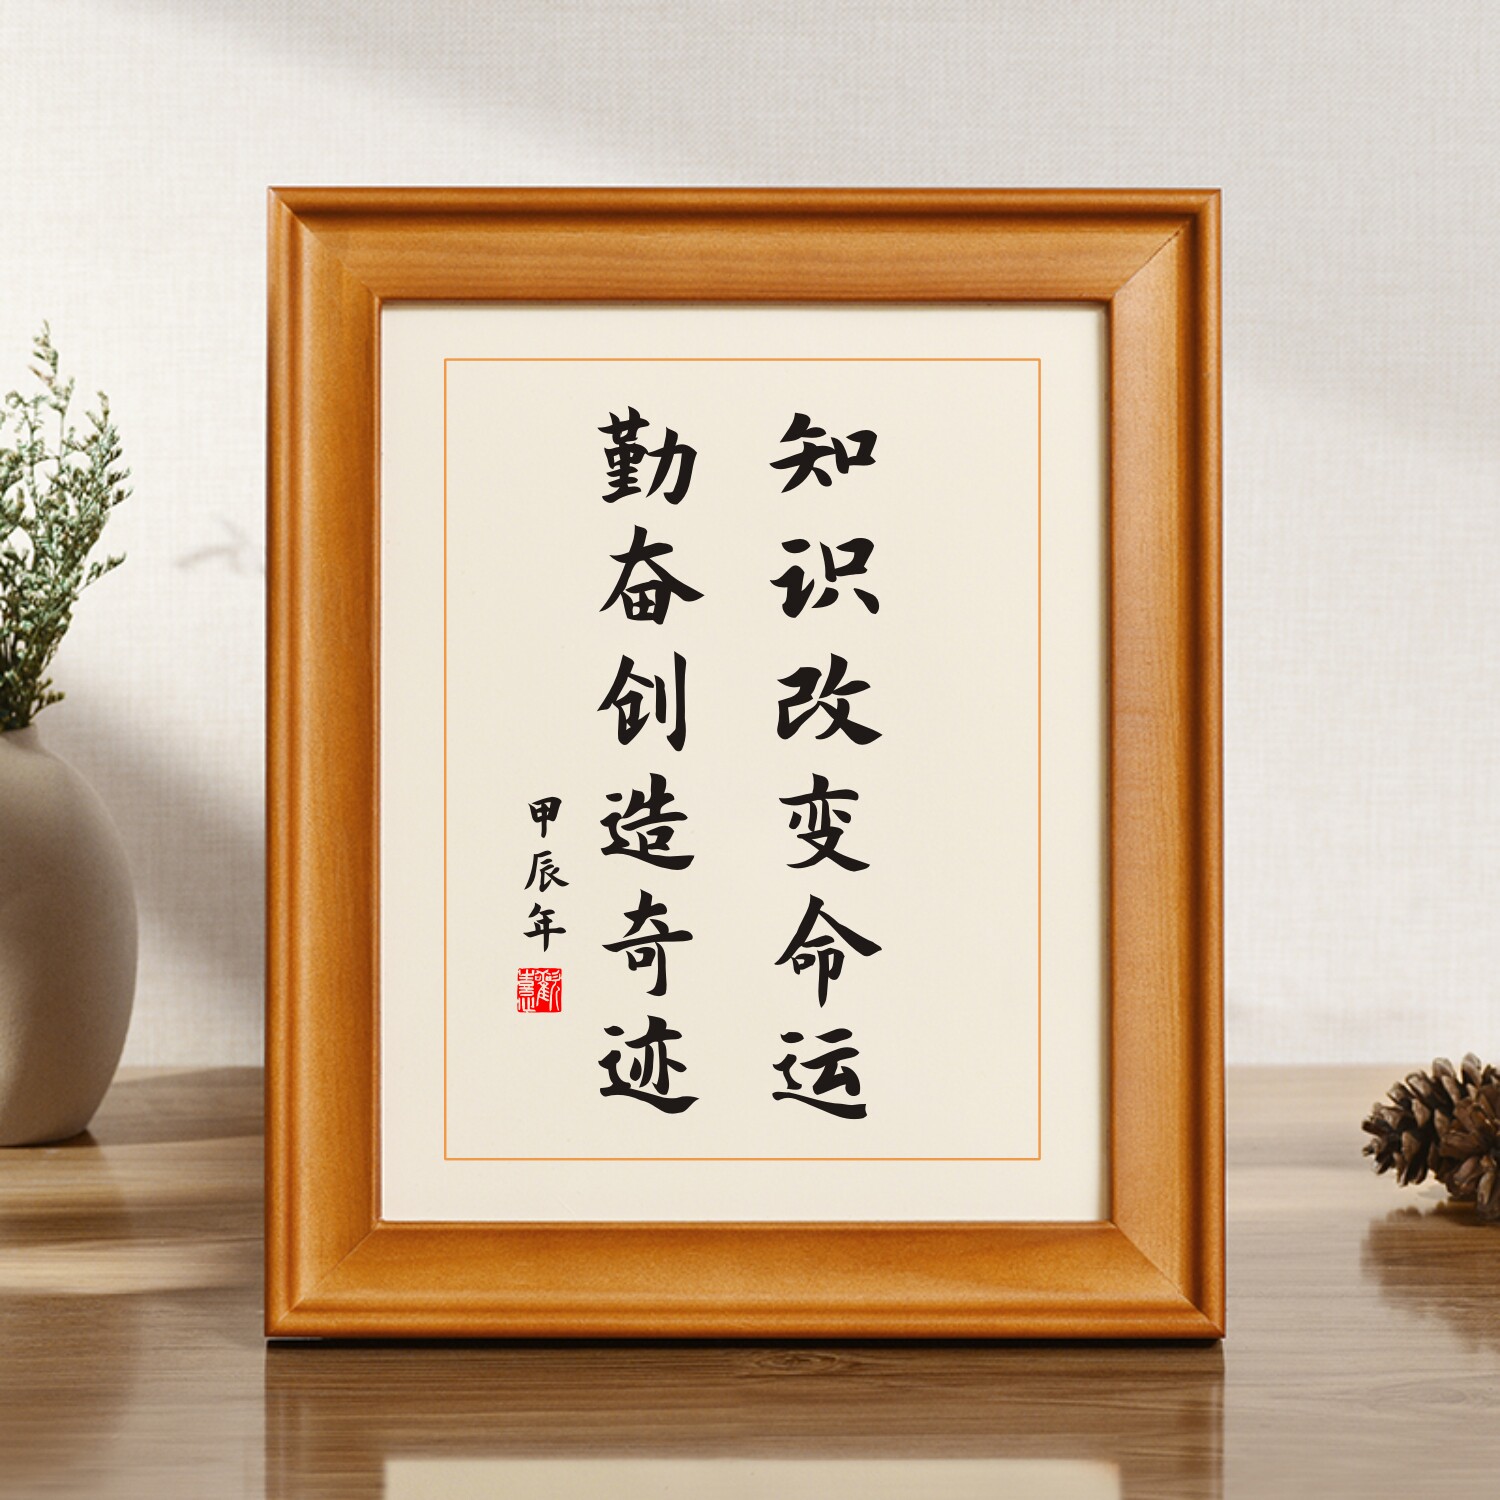 知识改变命运
勤奋创造奇迹
甲辰年